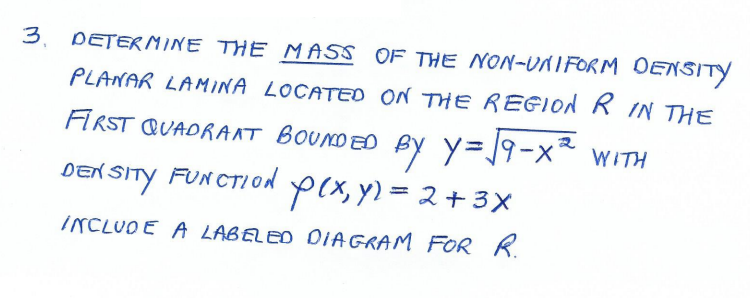 3. DETERMINE THE MASS OF THE NON-UNIFORM DENSITY
PLANAR LAMINA LOCATED ON THE REGION R IN THE
FIRST QUADRANT BOUNDED BY y=√9-x² WITH
DENSITY FUNCTION ρ(x,y) = 2+3x
INCLUDE A LABELED DIAGRAM FOR R.